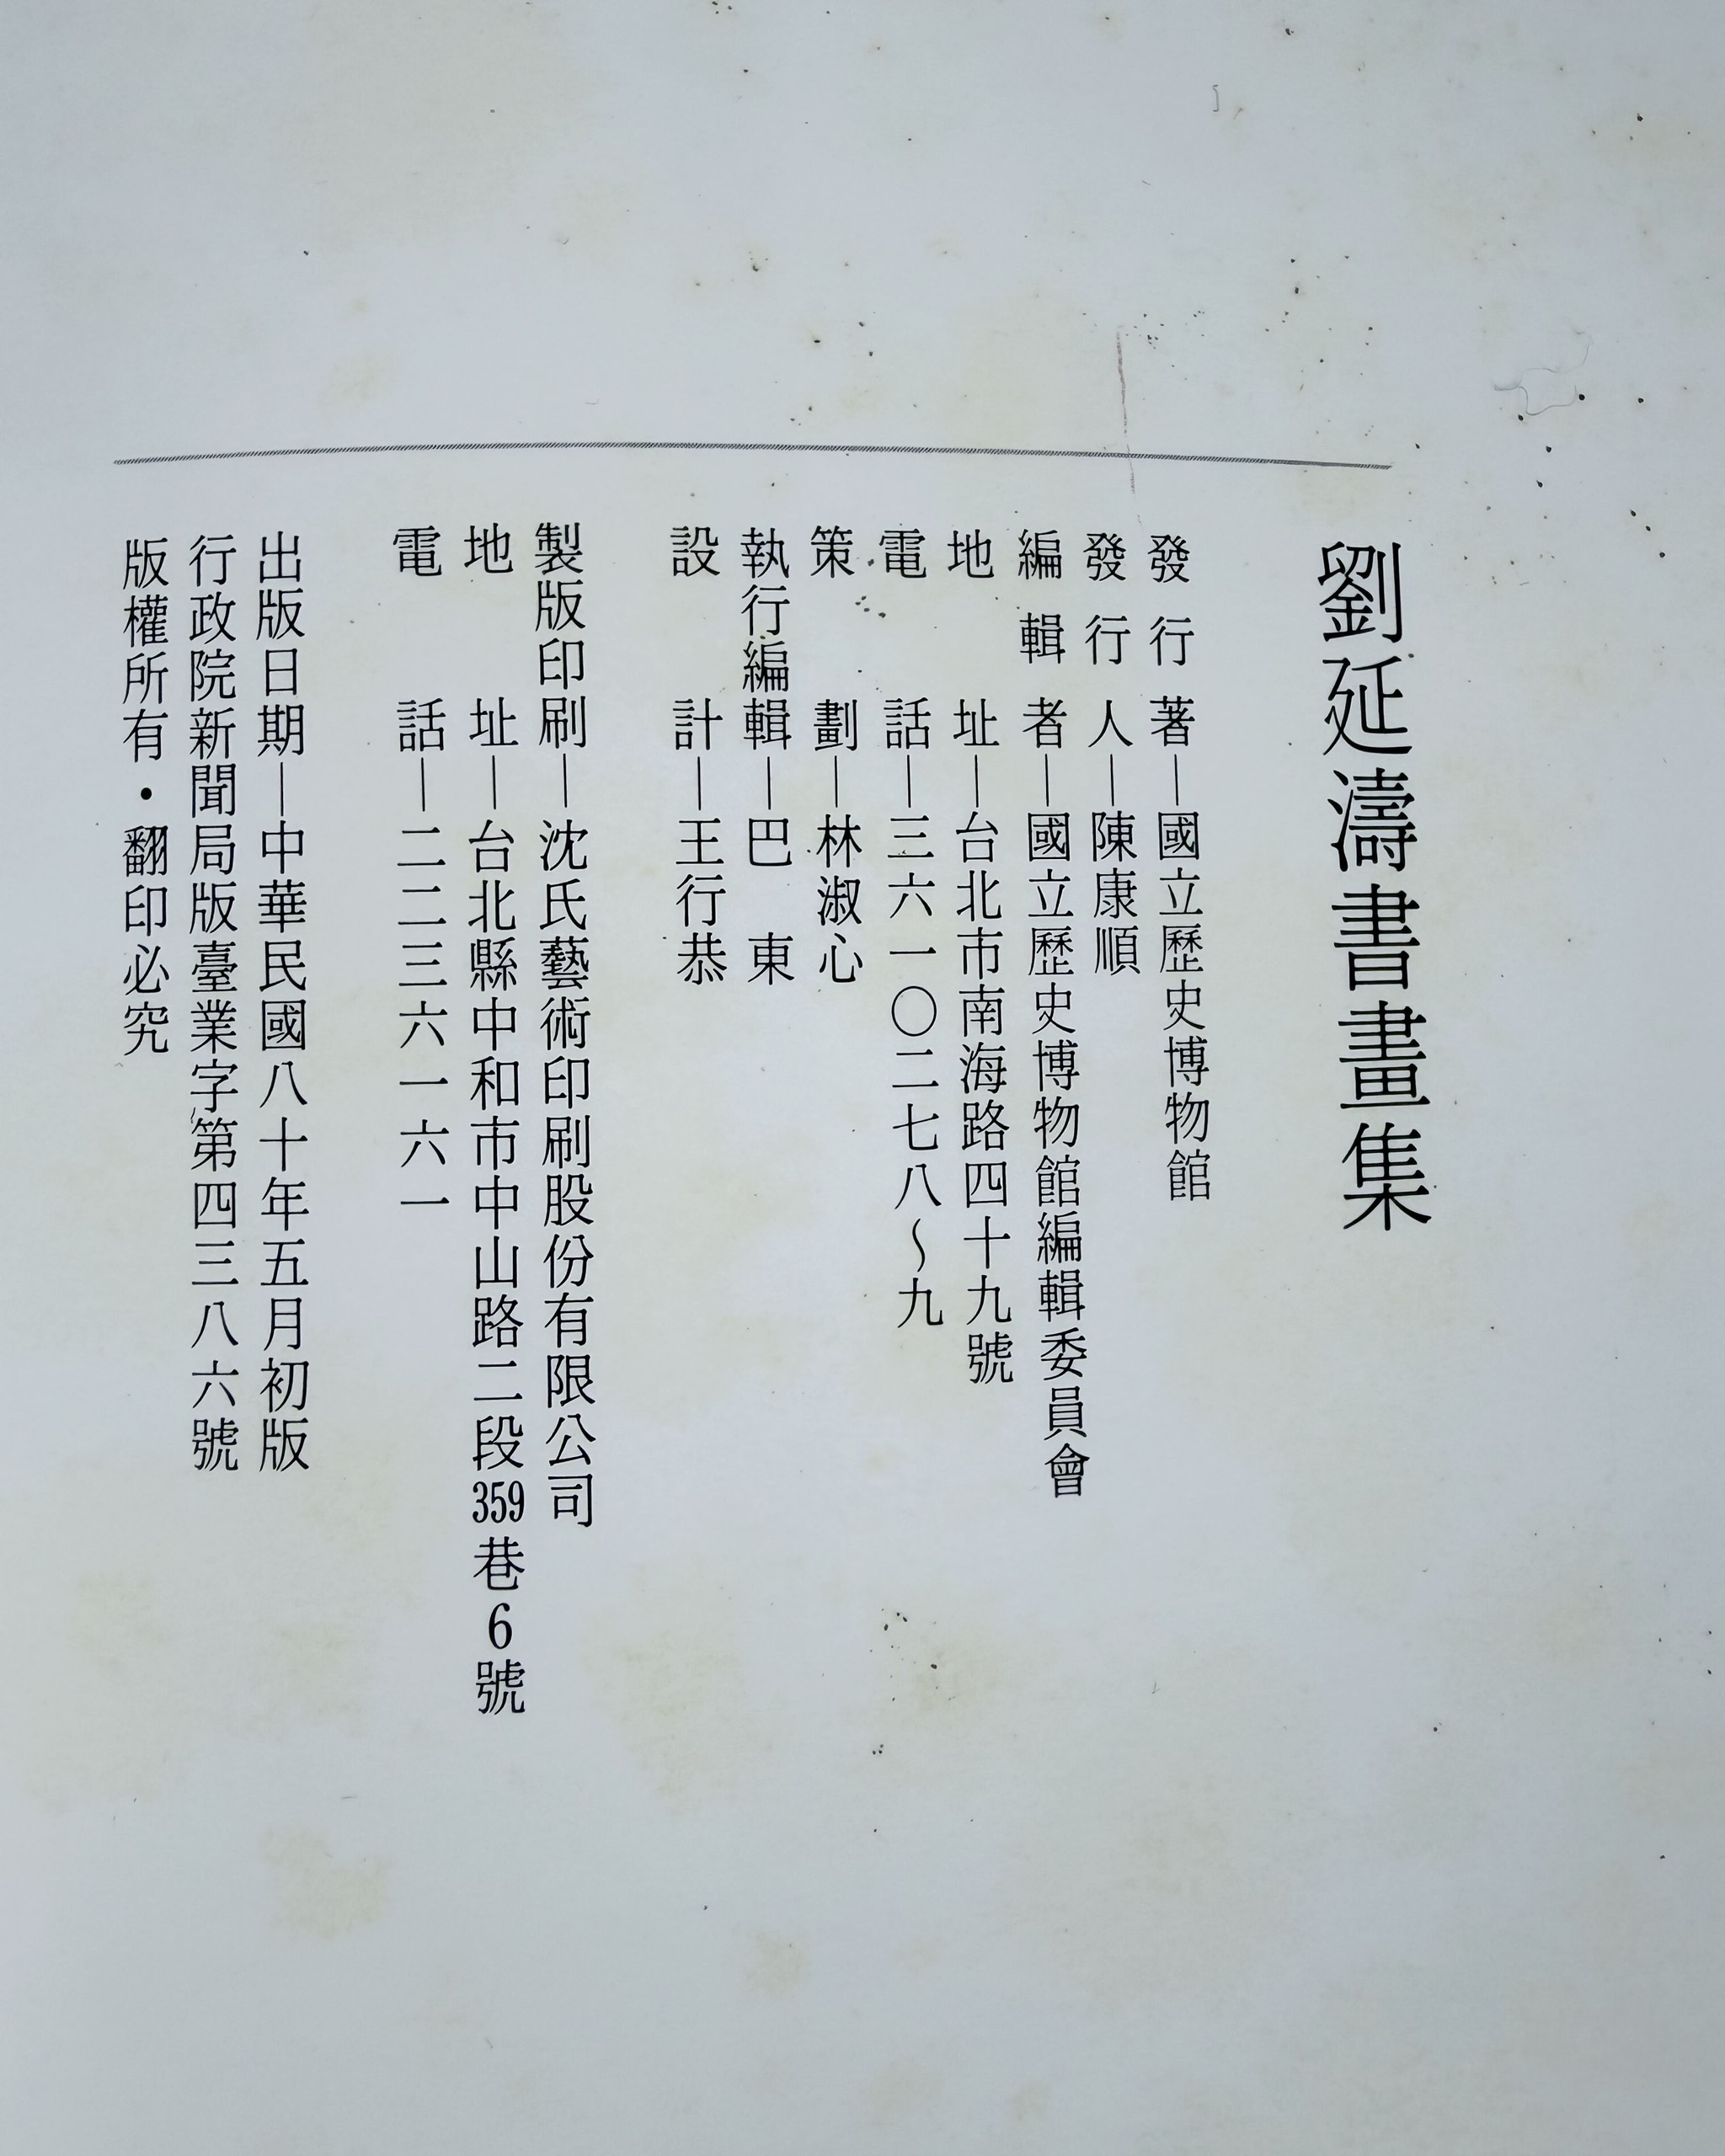 劉延濤書畫集
發行著—國立歷史博物館
發行人—陳康順
編輯者—國立歷史博物館編輯委員會
地址—台北市南海路四十九號
電話—三六一〇二七八~九
策劃—林淑心
執行編輯—巴東
設計—王行恭
製版印刷—沈氏藝術印刷股份有限公司
地址—台北縣中和市中山路二段359巷6號
電話—二二三六一六一
出版日期—中華民國八十年五月初版
行政院新聞局版臺業字第四三八六號
版權所有・翻印必究